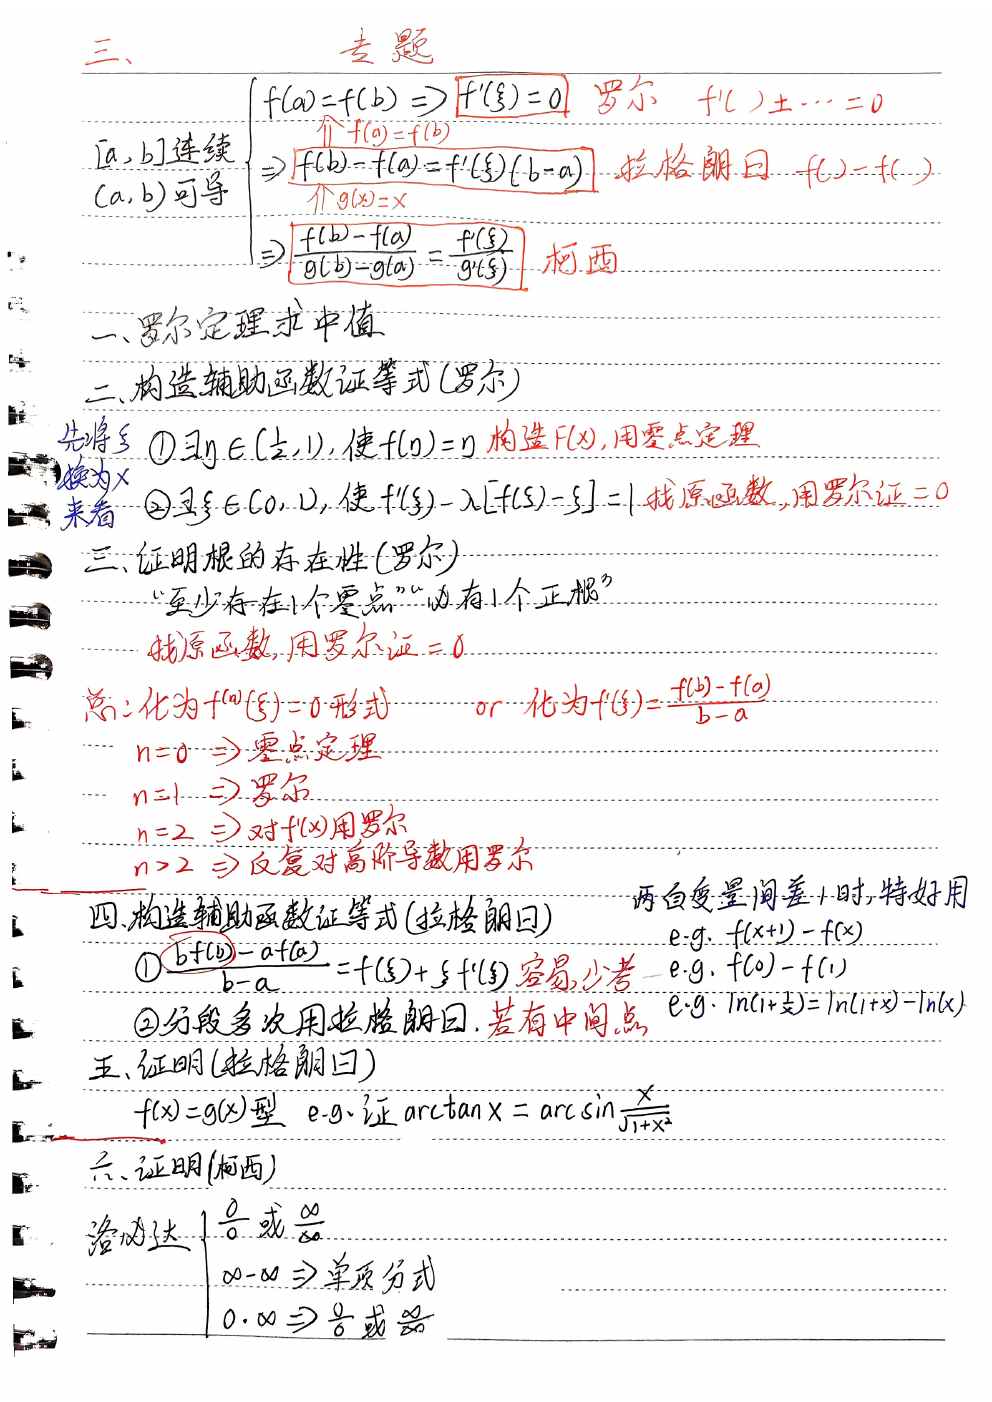 三、 专题
[a,b]连续
(a,b)可导
f(a)=f(b) ⇒ f'(ξ)=0 罗尔 f'( )±…=0
⇑ f(a)=f(b)
⇒ f(b)-f(a)=f'(ξ)(b-a) 拉格朗日 f( )-f( )
⇑ g(x)=x
⇒ \frac{f(b)-f(a)}{g(b)-g(a)} = \frac{f'(ξ)}{g'(ξ)} 柯西
一、罗尔定理求中值
二、构造辅助函数证等式(罗尔)
先将ξ
换为x
来看
①∃η∈(½,1),使f(η)=η 构造F(x),用零点定理
②∃ξ∈(0,1),使f'(ξ)-λ[f(ξ)-ξ]=1 找原函数,用罗尔证=0
三、证明根的存在性(罗尔)
“至少存在1个零点”“必有1个正根”
找原函数,用罗尔证=0
总:化为f⁽ⁿ⁾(ξ)=0形式 or 化为f'(ξ)=\frac{f(b)-f(a)}{b-a}
n=0 ⇒ 零点定理
n=1 ⇒ 罗尔
n=2 ⇒ 对f'(x)用罗尔
n>2 ⇒ 反复对高阶导数用罗尔
四、构造辅助函数证等式(拉格朗日)
①\frac{bf(b)-af(a)}{b-a}=f(ξ)+ξf'(ξ) 容易,少考
②分段多次用拉格朗日.若有中间点
两自变量间差1时,特好用
e.g. f(x+1)-f(x)
e.g. f(0)-f(1)
e.g. ln(1+\frac{1}{x})=ln(1+x)-ln(x)
五、证明(拉格朗日)
f(x)=g(x)型 e.g.证 arctanx=arcsin\frac{x}{\sqrt{1+x²}}
六、证明(柯西)
洛必达
\frac{0}{0}或\frac{∞}{∞}
∞-∞ ⇒ 单项分式
0·∞ ⇒ \frac{0}{0}或\frac{∞}{∞}